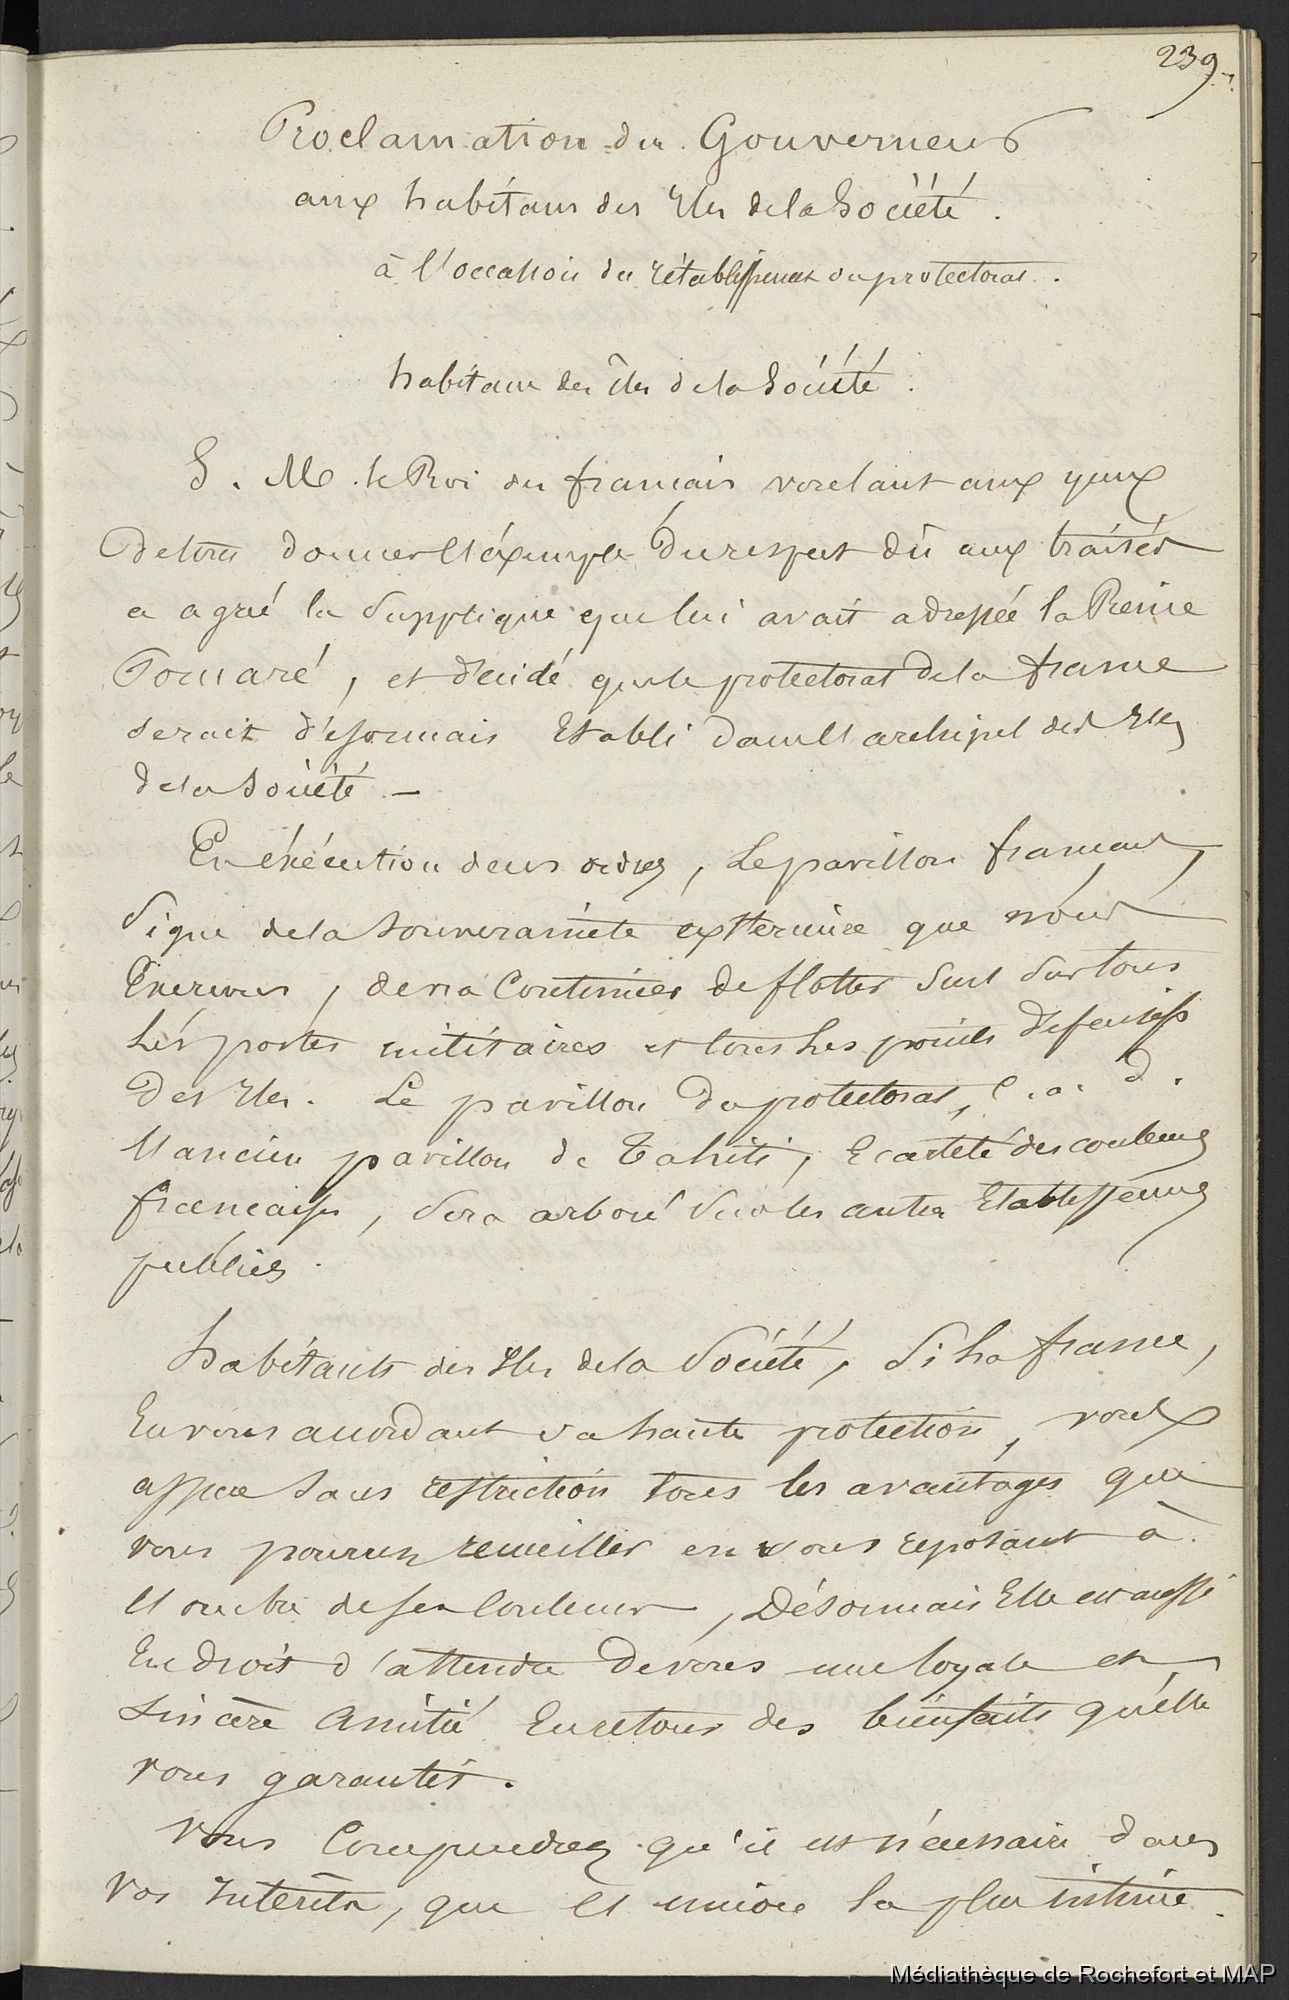 239.
Proclamation du Gouverneur
aux habitans des Iles de la Société.
à l'occasion du rétablissement du protectorat.
habitans des îles de la Société.
S. M. le Roi des français voulant aux yeux
de tous donner l'éxemple du respect dû aux traités
a agréé la supplique que lui avait adressée la Reine
Pomaré, et décidé que le protectorat de la france
serait désormais Etabli dans l'archipel des Iles
de la Société —
En éxécution de ses ordres, Le pavillon français,
signe de la souveraineté extérieure que nous
Exerçons, devra Continuer de flotter seul sur tous
Les postes militaires et tous les points défensifs
Des Iles. Le pavillon du protectorat, C. a. d.
l'ancien pavillon de Tahiti, Ecartelé des couleurs
francaises, sera arboré sur les autres Etablissemens
publics.
habitants des Iles de la Société, Si la france,
En vous accordant sa haute protection, veut
assurer sans restriction tous les avantages que
vous pourrez recueillir en vous reposant à
l'ombre de ses Couleurs, Désormais Elle est aussi
En droit d'attendre de vous une loyale et
sincère Amitié En retour des bienfaits qu'elle
vous garantit.
Vous Comprendrez qu'il est nécessaire dans
vos Intérêts, que l'union la plus intime
Médiathèque de Rochefort et MAP